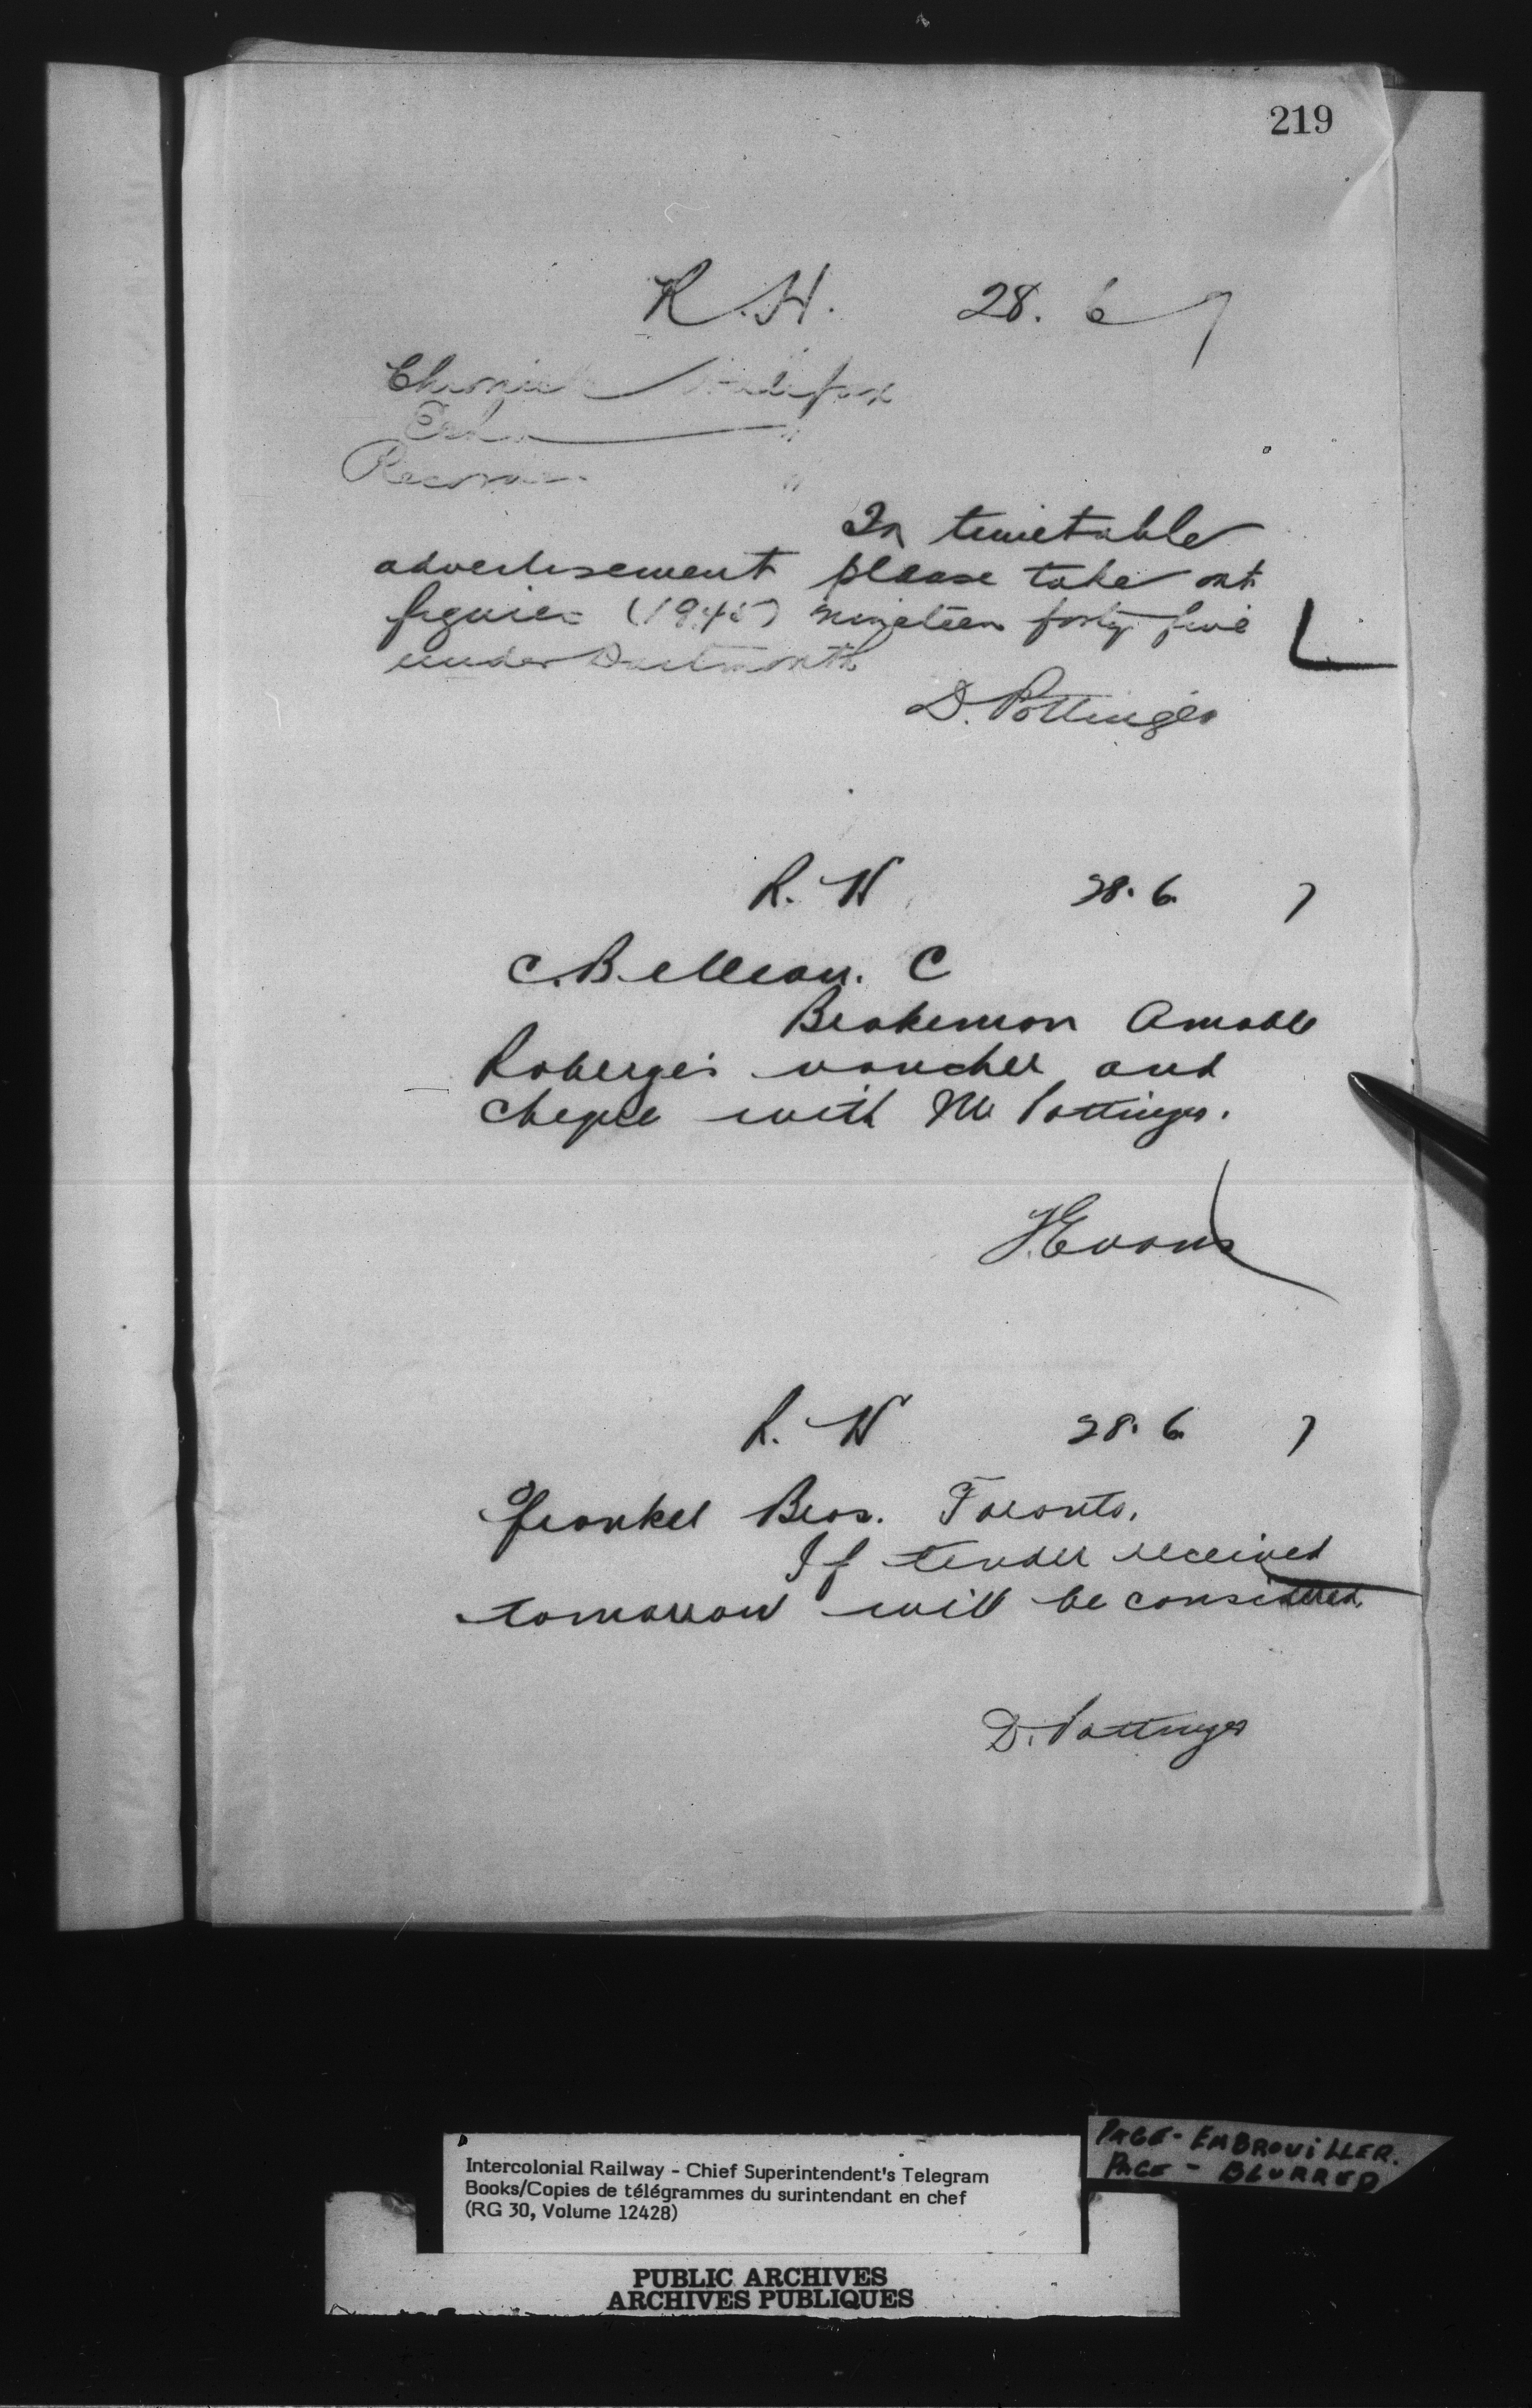 219
R.H. 28. 6 7
Chronicle Halifax
Echo "
Recorder "
In timetable
advertisement please take out
figures (19.45) nineteen forty five
under Dartmouth
D. Pottinger
R. H 28. 6. 7
C. Belleau. C
Brakeman Amable
Roberge's voucher and
cheque with Mr Pottinger.
J. Evans
R. H 28. 6. 7
Frankel Bros. Toronto.
If tender received
tomorrow will be considered.
D. Pottinger
PAGE - EMBROUILLER.
PAGE - BLURRED
Intercolonial Railway - Chief Superintendent's Telegram
Books/Copies de télégrammes du surintendant en chef
(RG 30, Volume 12428)
PUBLIC ARCHIVES
ARCHIVES PUBLIQUES